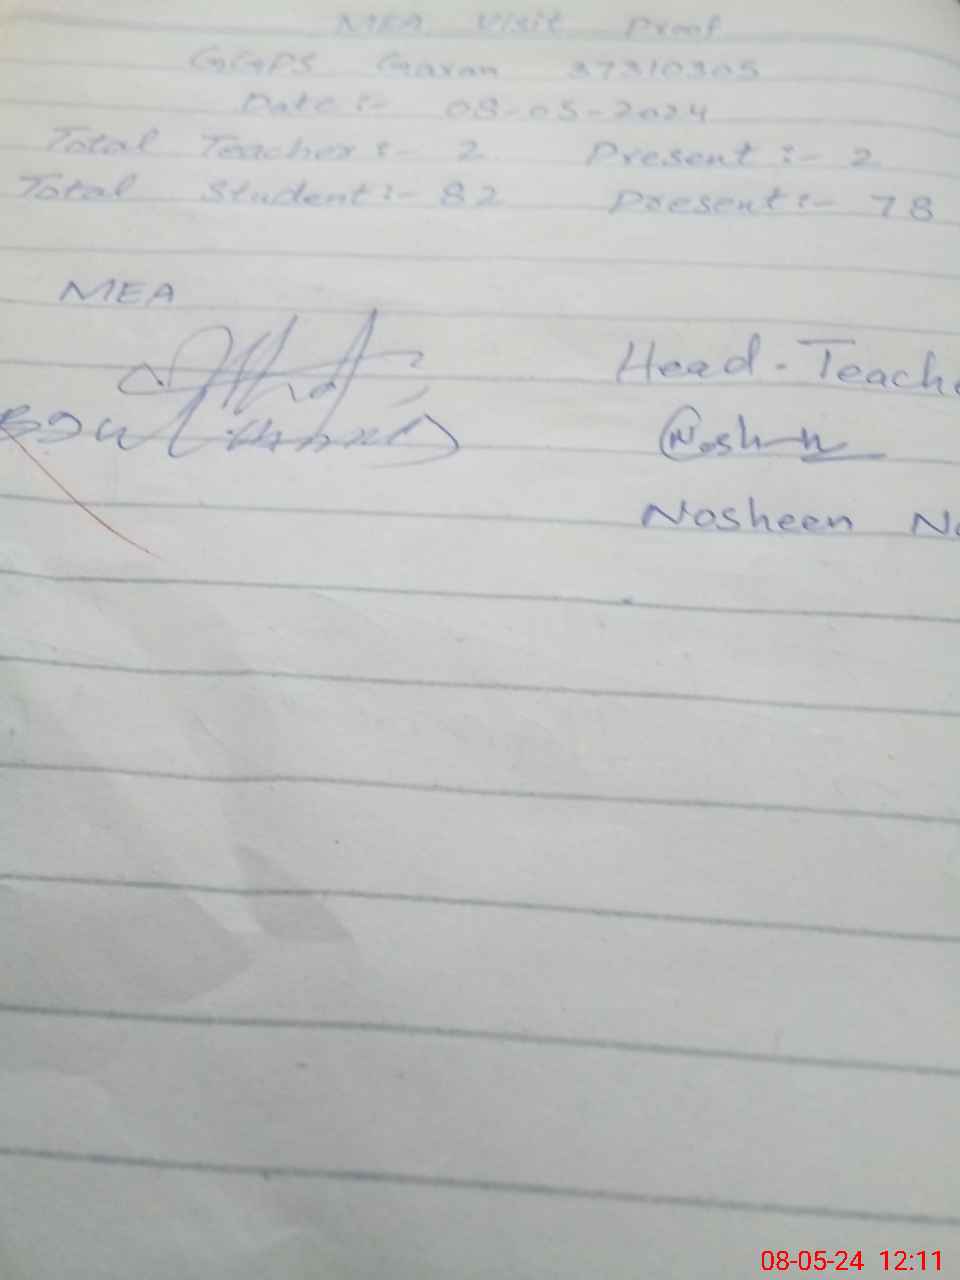 MEA Visit Proof
GGPS Gavan 37310305
Date :- 08-05-2024
Total Teacher :- 2 Present :- 2
Total Student :- 82 Present :- 78
MEA
Head - Teache
Nosheen
Nosheen Na
08-05-24 12:11